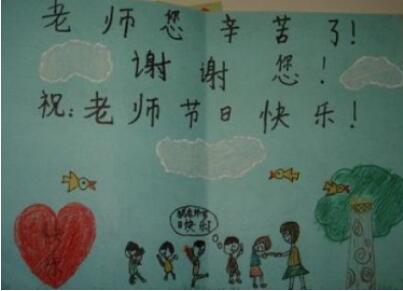 老师您辛苦了!
谢谢您!
祝:老师节日快乐!
祝老师节
日快乐!
快乐